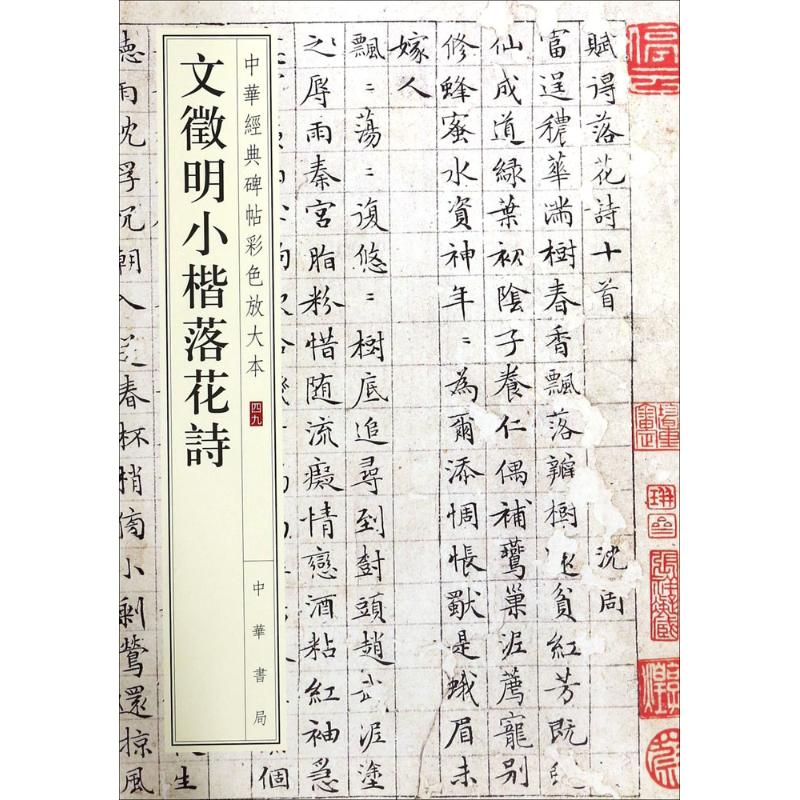 賦得落花詩十首 沈周
富逞穠華滿樹春香飄落瓣樹還貧紅芳既
仙成道綠葉初陰子養仁偶補鶯巢泥薦寵別
修蜂蜜水資神年〻為爾添惆悵 是蛾眉未
嫁人
飄〻蕩〻復悠〻樹底追尋到樹頭趙武泥塗
之辱雨秦宮脂粉惜隨流癡情戀酒粘紅袖急
個
中華經典碑帖彩色放大本 四九
中華書局
文徵明小楷落花詩
生
浮沉朝入 春杯捎 小剩鶯還掠風